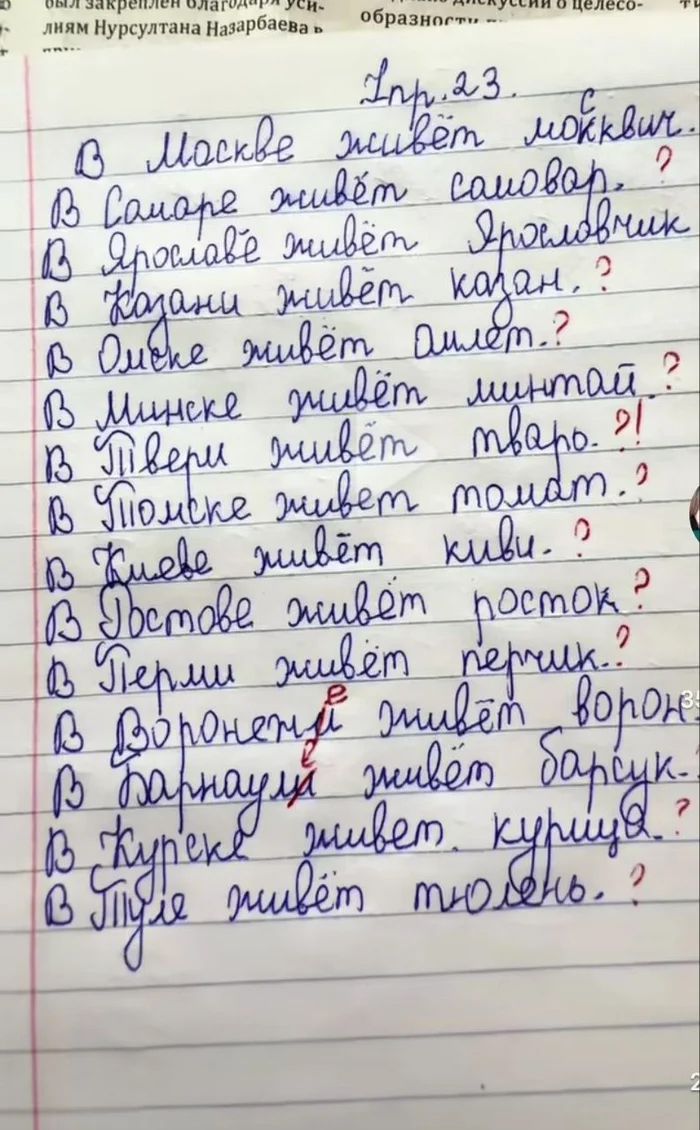 был закреплен благодаря уси-
лиям Нурсултана Назарбаева в
дискуссии о целесо-
образности
Упр. 23.
В Москве живёт москвич.
В Самаре живёт самовар. ?
В Ярославе живёт Ярославчик
В Казани живёт казан. ?
В Омске живёт омлет. ?
В Минске живёт минтай. ?
В Твери живёт тварь. ?!
В Томске живет томат. ?
В Киеве живёт киви. ?
В Ростове живёт росток ?
В Перми живёт перчик. ?
В Воронеже живёт ворон
В Барнауле живёт барсук.
В Курске живет курица. ?
В Туле живёт тюлень. ?